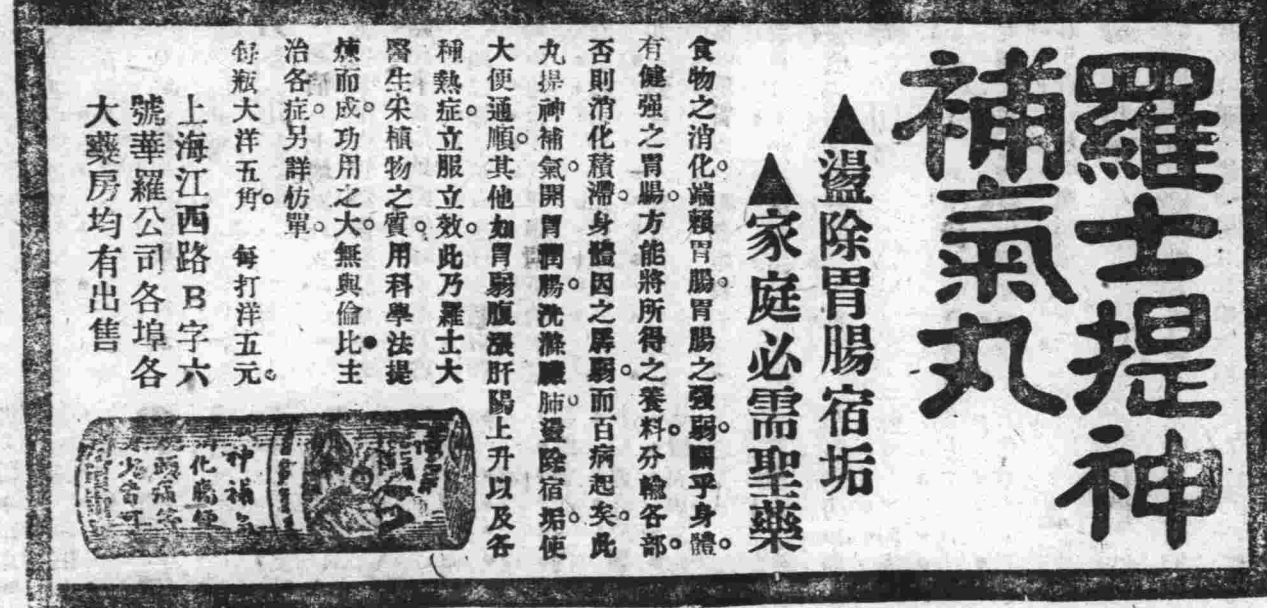 羅士提神
補氣丸
▲盪除胃腸宿垢
▲家庭必需聖藥
食物之消化。端賴胃腸。胃腸之强弱。關乎身體。
有健强之胃腸。方能將所得之養料。分輸各部。
否則消化積滯。身體因之孱弱。而百病起矣。此
丸提神補氣。開胃潤腸。洗滌臟肺。盪除宿垢。使
大便通順。其他如胃弱腹漲肝陽上升以及各
種熱症。立服立效。此乃羅士大
醫生采植物之質。用科學法提
煉而成。功用之大。無與倫比●主
治各症。另詳仿單。
每瓶大洋五角。每打洋五元。
上海江西路B字六
號華羅公司各埠各
大藥房均有出售
神補
化
頭